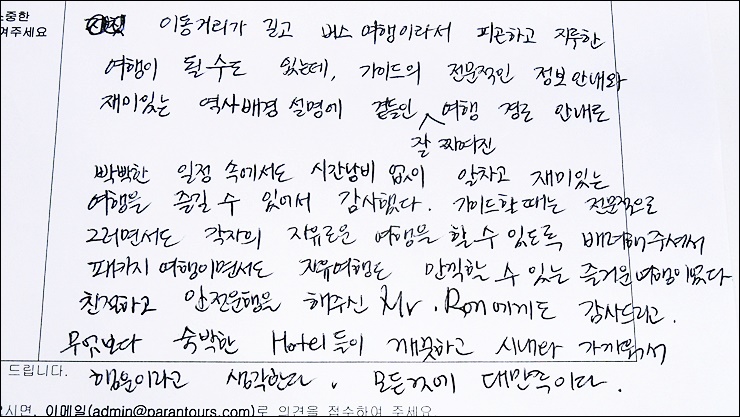 소중한
여주세요
이동거리가 길고 버스 여행이라서 피곤하고 지루한
여행이 될수도 있는데, 가이드의 전문적인 정보안내와
재미있는 역사배경 설명에 곁들인 여행 경로 안내로
잘 짜여진
빡빡한 일정 속에서도 시간낭비 없이 알차고 재미있는
여행을 즐길 수 있어서 감사했다. 가이드할 때는 전문적으로
그러면서도 각자의 자유로운 여행을 할 수 있도록 배려해주셔서
패키지 여행이면서도 자유여행도 만끽할 수 있는 즐거운 여행이었다
친절하고 안전운행을 해주신 Mr. Ron에게도 감사드리고.
무엇보다 숙박한 Hotel들이 깨끗하고 시내와 가까워서
드립니다.
행운이라고 생각한다. 모든것에 대만족이다.
으시면, 이메일(admin@parantours.com)로 의견을 접수하여 주세요.